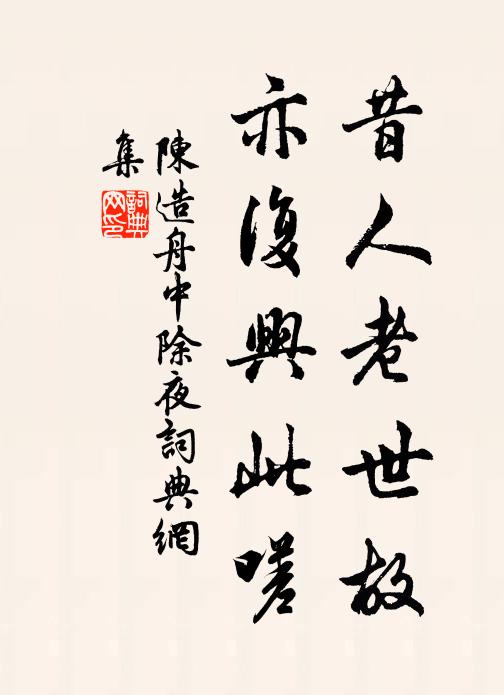 昔人老世故
亦復興此嗟
陳造舟中除夜詞典網
集
詞典
网印